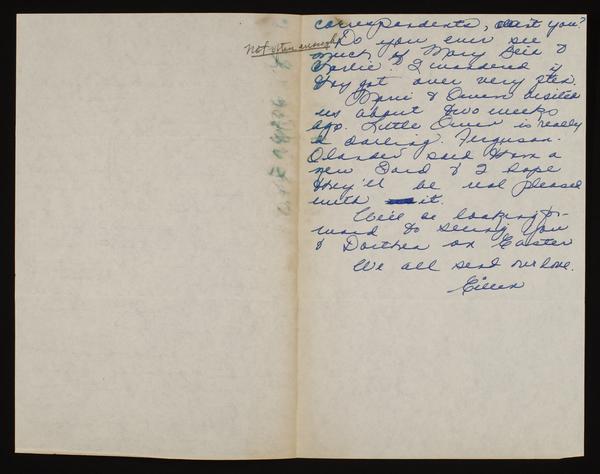 correspondents, aren't you?
not often enough
Do you ever see
much of Mary Beid &
Charlie? I wondered if
they got over very often.
& Owen visited
us about two weeks
ago. Little Owen is really
a darling. Ferguson
Olander sold them a
new Ford & I hope
they'll be real pleased
with it.
We'll be looking for-
ward to seeing you
& Dorthea on Easter
We all send our love.
Eileen